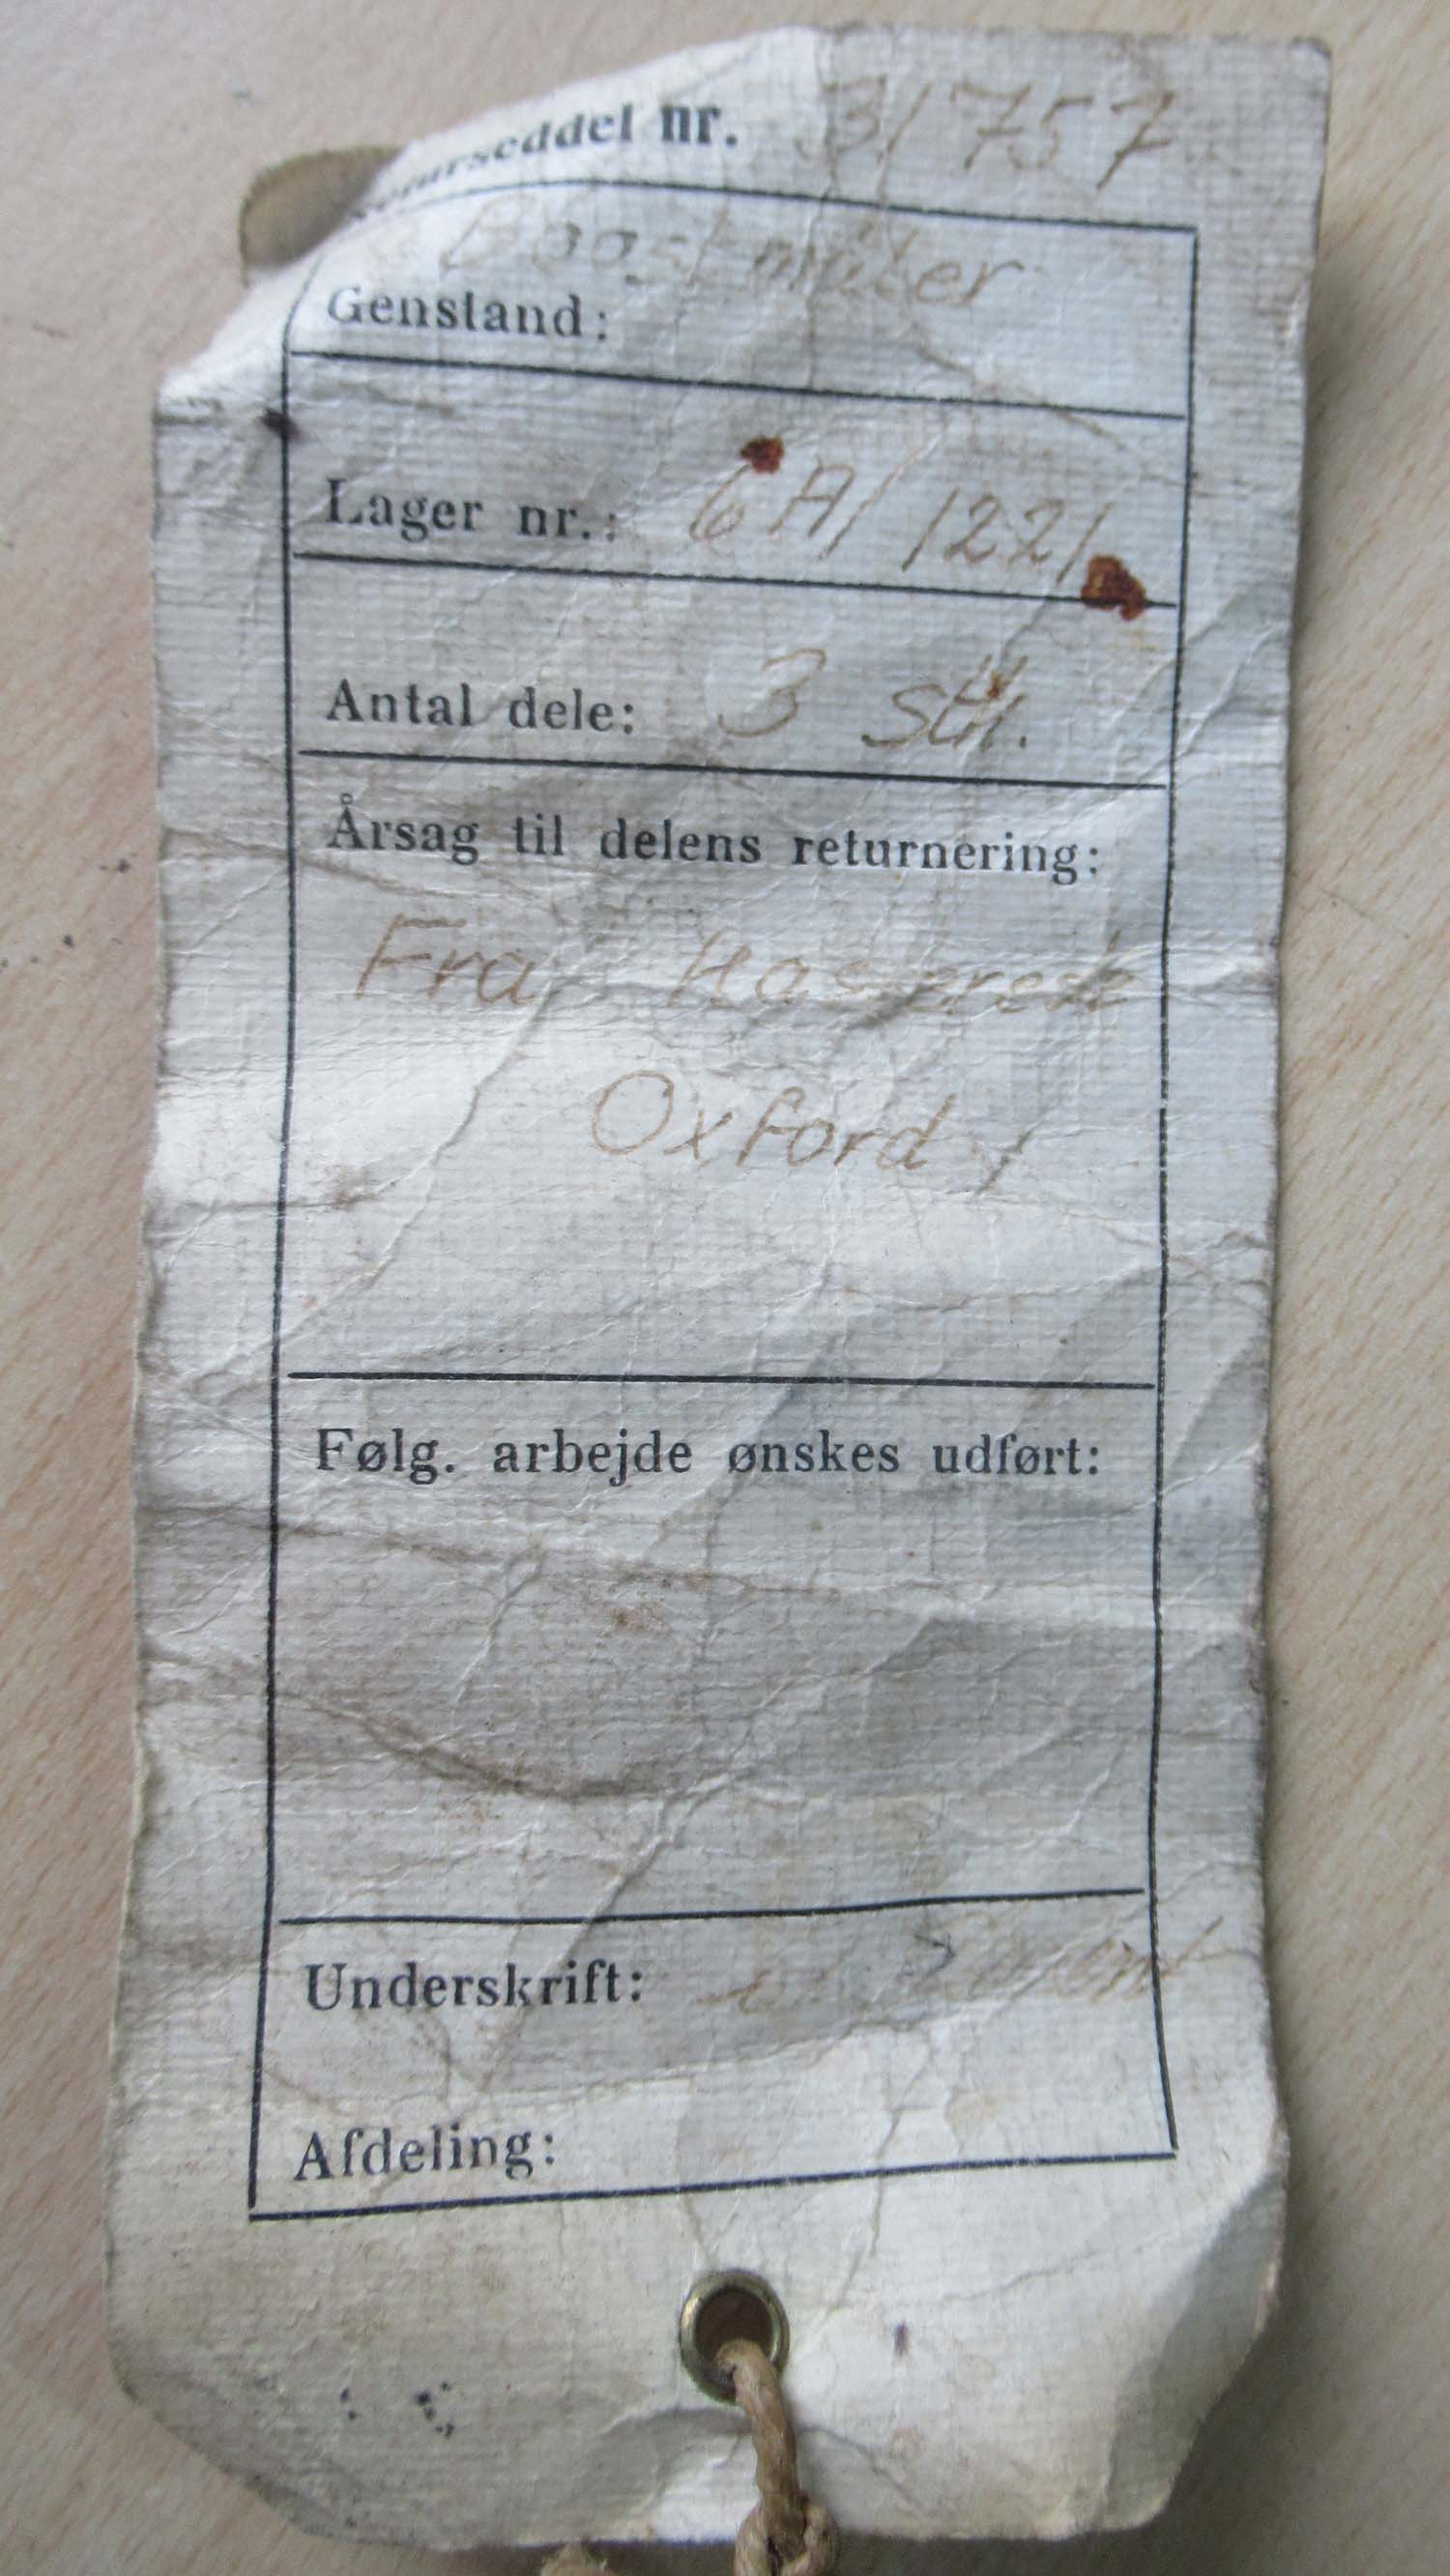 nr. 31757
Boostmåler
Genstand:
Lager nr.: 6A/1221
Antal dele: 3 stk.
Årsag til delens returnering:
Fra
Oxford
Følg. arbejde ønskes udført:
Underskrift:
Afdeling: